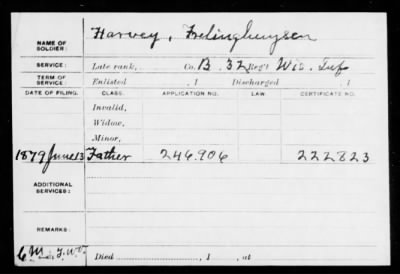 NAME OF SOLDIER: Harvey, Frelinghuysen
SERVICE: Late rank, Co. B. 32 Reg't Wis. Inf
TERM OF SERVICE: Enlisted , 1 Discharged , 1
DATE OF FILING. CLASS. APPLICATION NO. LAW. CERTIFICATE NO.
Invalid,
Widow,
Minor,
1879 June 13 Father 246.906 222823
ADDITIONAL SERVICES:
REMARKS:
Died , 1 , at